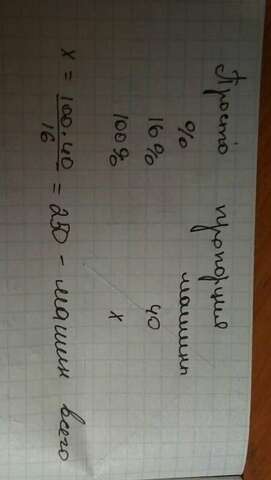 Просто пропорция
% машины
16% 40
100% x
x = 100·40 / 16 = 250 - машин всего